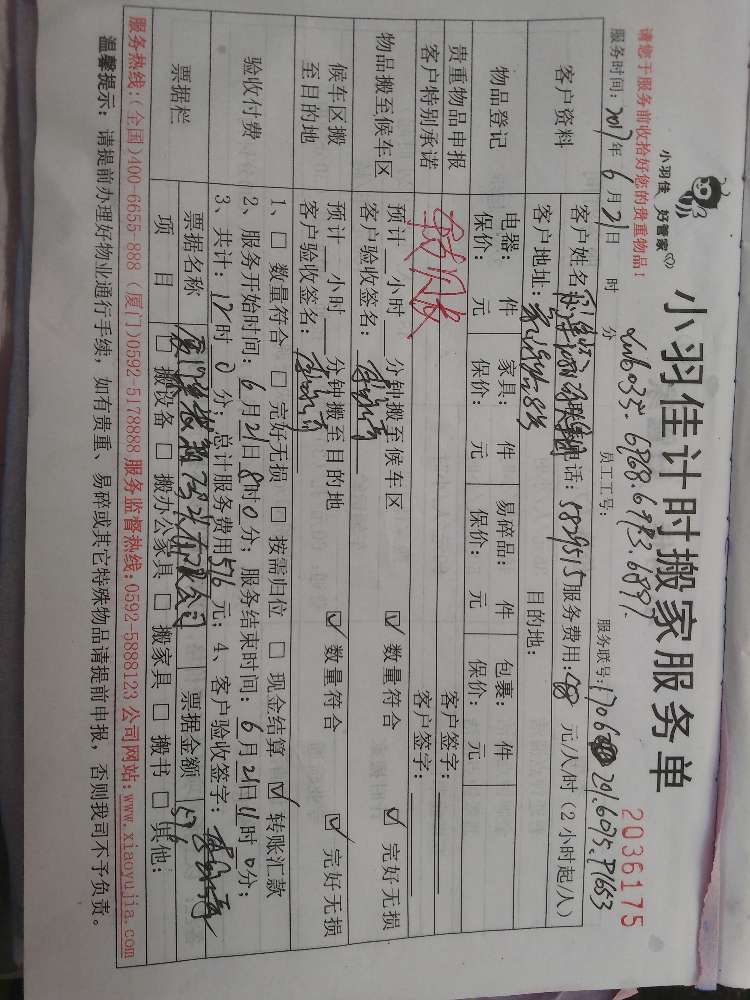 小羽佳 好管家
小羽佳计时搬家服务单
2036175
请您于服务前收拾好您的贵重物品！
服务时间：2017年6月21日 时 分 员工工号： 服务联号：
客户资料
客户姓名 电话：5829515服务费用：48 元/人/时（2小时起/人）
客户地址： 目的地：
物品登记
电器： 件 家具： 件 易碎品： 件 包裹： 件
保价： 元 保价： 元 保价： 元 保价： 元
贵重物品申报 客户签字：
客户特别承诺 客户签字：
物品搬至候车区
预计 小时 分钟搬至候车区 ☑ 数量符合 ☑ 完好无损
客户验收签名：
候车区搬至目的地
预计 小时 分钟搬至目的地 ☑ 数量符合 ☑ 完好无损
客户验收签名：
验收付费
1、□ 数量符合 □ 完好无损 □ 按需归位 □ 现金结算 ☑ 转账汇款
2、服务开始时间：6月21日8时0分；服务结束时间：6月21日11时0分；
3、共计：12时0分；总计服务费用576元；4、客户验收签字：
票据栏
票据名称 票据金额 576
项 目 □ 搬设备 □ 搬办公家具 □ 搬家具 □ 搬书 □ 其他：
服务热线：（全国）400-6655-888（厦门）0592-5178888 服务监督热线：0592-5888123 公司网站：www.xiaoyujia.com
温馨提示：请提前办理好物业通行手续，如有贵重、易碎或其它特殊物品请提前申报，否则我司不予负责。